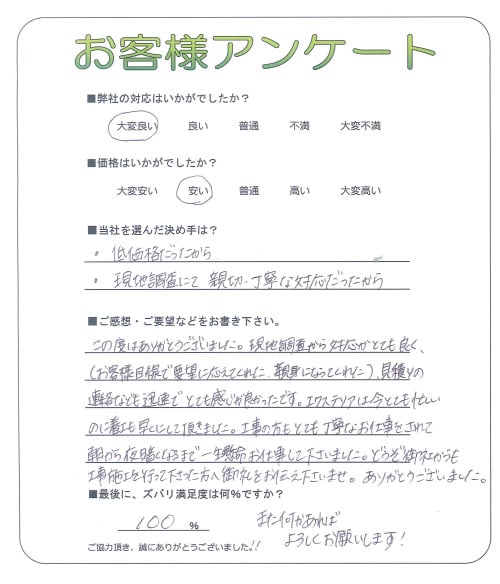 お客様アンケート
■弊社の対応はいかがでしたか？
大変良い 良い 普通 不満 大変不満
■価格はいかがでしたか？
大変安い 安い 普通 高い 大変高い
■当社を選んだ決め手は？
・低価格だったから
・現地調査にて親切、丁寧な対応だったから
■ご感想・ご要望などをお書き下さい。
この度はありがとうございました。現地調査から対応がとても良く、
（お客様目線で要望に応えてくれた、親身になってくれた）、見積りの
連絡なども迅速でとても感じが良かったです。エクステリアは今とても忙しい
のに着工も早くにして頂きました。工事の方もとても丁寧なお仕事をされて
朝から夜暗くなるまで一生懸命お仕事して下さいました。どうぞ御社からも
工事施工を行って下さった方へ御礼をお伝え下さいませ。ありがとうございました。
■最後に、ズバリ満足度は何％ですか？
100 %
また何かあれば
よろしくお願いします!
ご協力頂き、誠にありがとうございました。!!